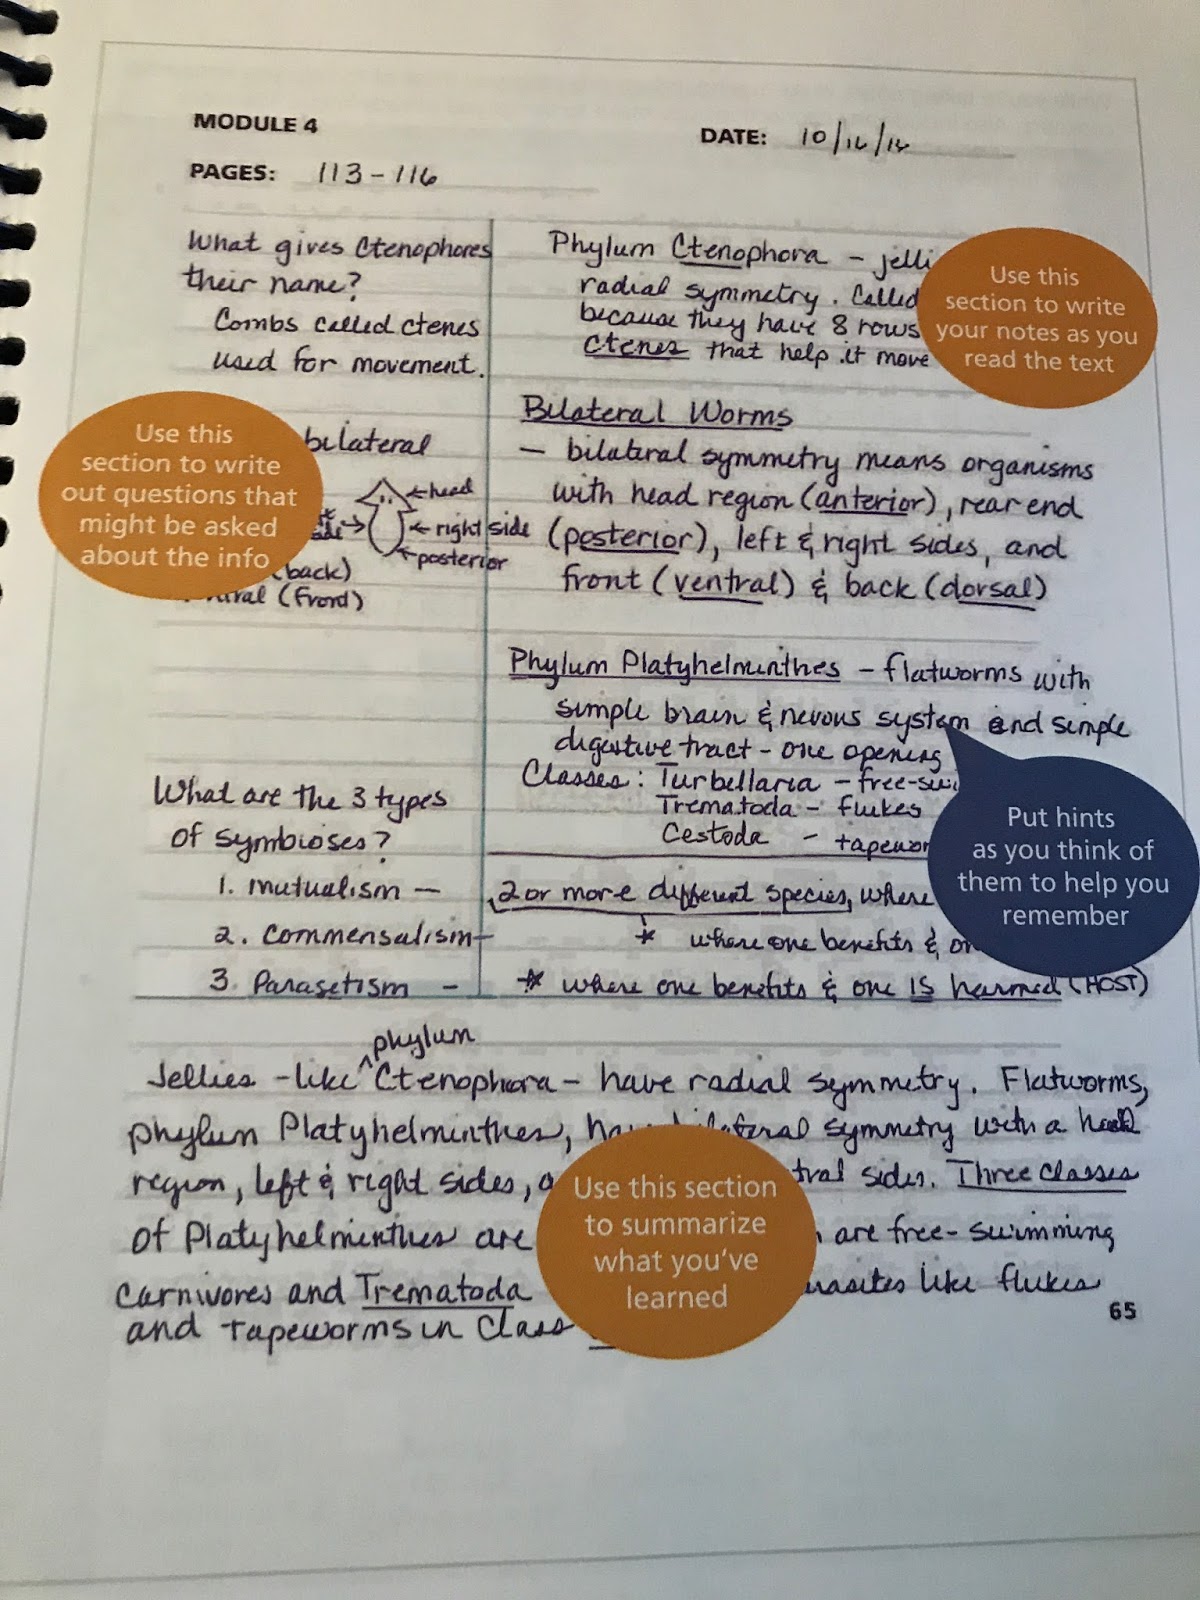 MODULE 4
DATE: 10/16/16
PAGES: 113-116
What gives Ctenophores
their name?
Combs called ctenes
used for movement.
Phylum Ctenophora - jelli
radial symmetry. Called
because they have 8 rows
ctenes that help it move
Use this
section to write
your notes as you
read the text
Use this
section to write
out questions that
might be asked
about the info
bilateral
head
right side
posterior
(back)
(front)
Bilateral Worms
- bilateral symmetry means organisms
with head region (anterior), rear end
(posterior), left & right sides, and
front (ventral) & back (dorsal)
Phylum Platyhelminthes - flatworms with
simple brain & nevous system and simple
digestive tract - one opening
Classes: Turbellaria - free-swi
Trematoda - flukes
Cestoda - tapewor
Put hints
as you think of
them to help you
remember
What are the 3 types
of symbioses?
1. mutualism - 2 or more different species, where
2. commensalism - * where one benefits & on
3. Parasetism - * where one benefits & one IS harmed (HOST)
phylum
Jellies - like ^ Ctenophora - have radial symmetry. Flatworms,
phylum Platyhelminthes, have bilateral symmetry with a head
region, left & right sides, a tral sides. Three classes
of Platyhelminthes are are free-swimming
carnivores and Trematoda rasites like flukes
and tapeworms in Class
Use this section
to summarize
what you've
learned
65